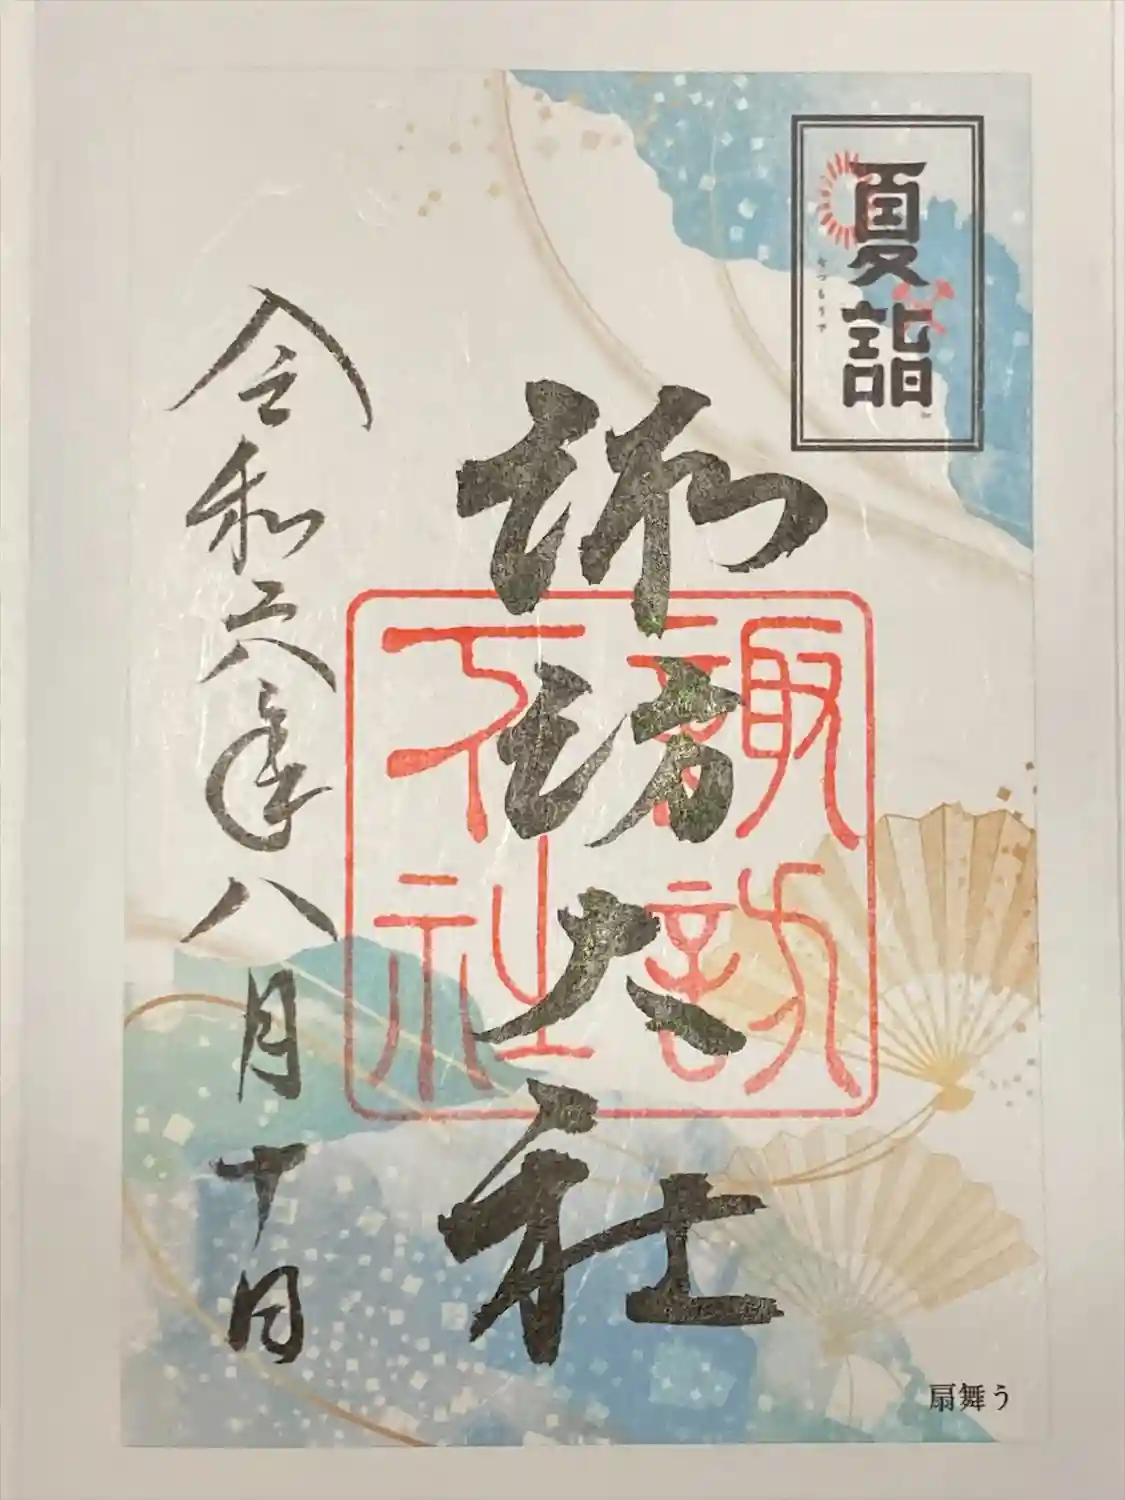 夏詣
なつもうで
諏訪大社
諏訪
大社
令和六年八月十日
扇舞う